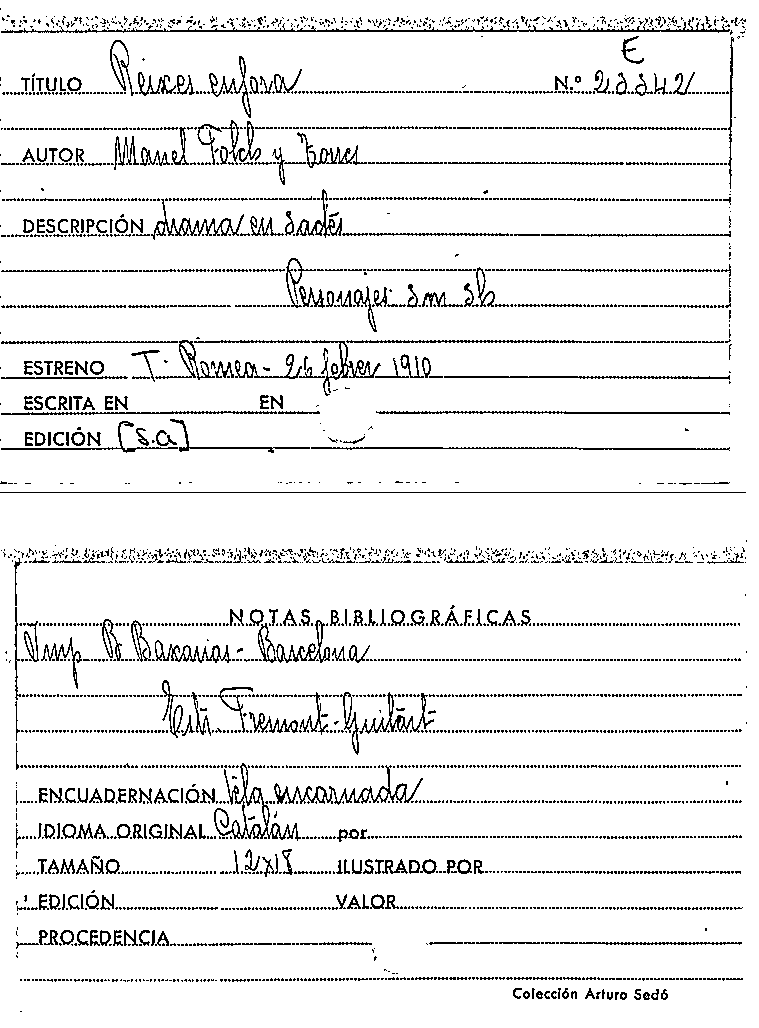 E
TÍTULO Reixes enfora N.º 23342
AUTOR Manel Folch y Torres
DESCRIPCIÓN drama en 3 actes
Personajes 3m 3h
ESTRENO T. Romea - 26 febrer 1910
ESCRITA EN EN
EDICIÓN [S.a]
NOTAS BIBLIOGRÁFICAS
Imp B Baxarias - Barcelona
Edit. Fremont - Guitart
ENCUADERNACIÓN tela encarnada
IDIOMA ORIGINAL Catalán por
TAMAÑO 12x18 ILUSTRADO POR
EDICIÓN VALOR
PROCEDENCIA
Colección Arturo Sedó